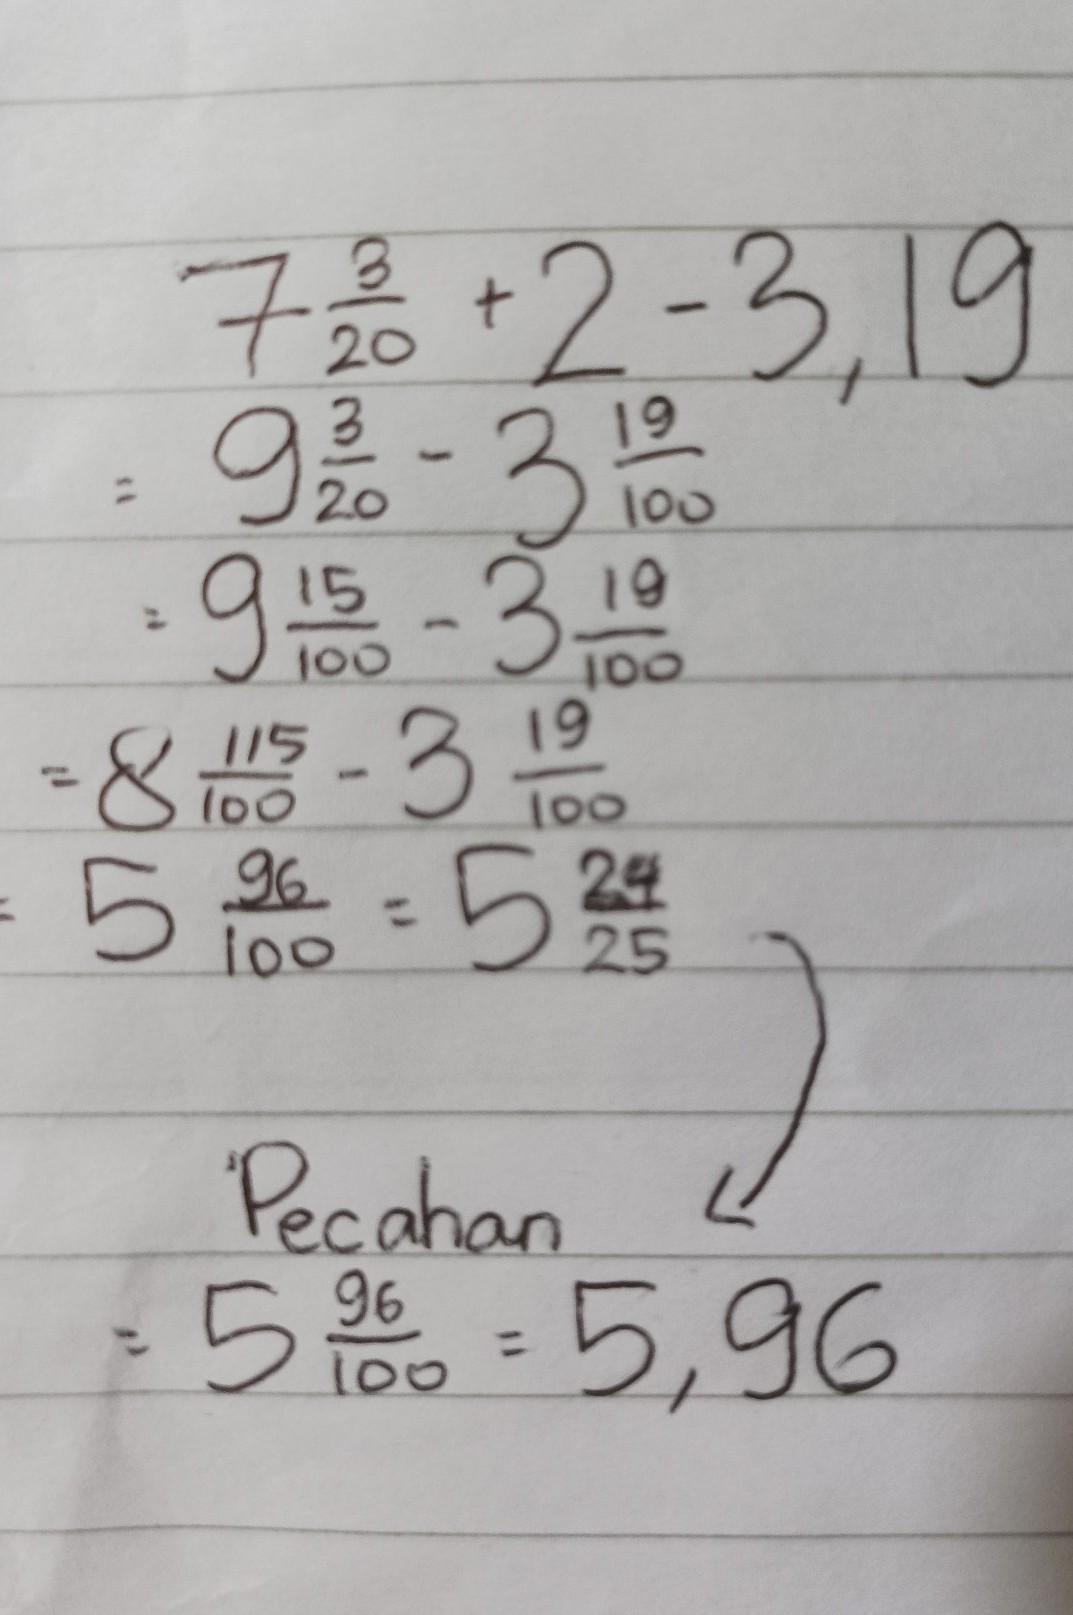 7 3/20 + 2 - 3,19
= 9 3/20 - 3 19/100
= 9 15/100 - 3 19/100
= 8 115/100 - 3 19/100
= 5 96/100 = 5 24/25
Pecahan
= 5 96/100 = 5,96